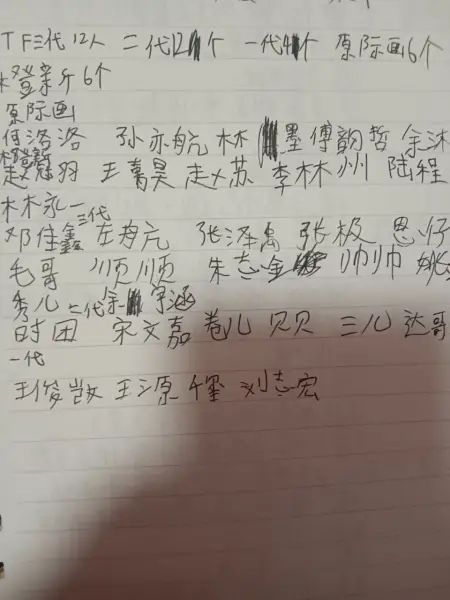 TF三代12人 二代12个 一代4个 原际画6个
登录 6个
原际画
何洛洛 孙亦航 林 墨 傅韵哲 余沐
赵冠羽 王萬昊 赵 苏 李林 州 陆程
林永一
三代
邓佳鑫 左航 张泽禹 张极 恩仔
毛哥 顺顺 朱志金 帅帅 姚
秀儿 二代 余宇涵
时团 宋文嘉 卷儿 贝贝 三儿 达哥
一代
王俊凯 王源 千玺 刘志宏